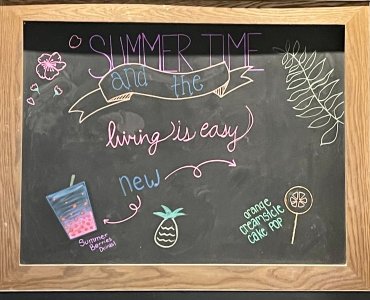 SUMMER TIME
and the
living is easy
new
Summer
Berries
orange
creamsicle
cake pop